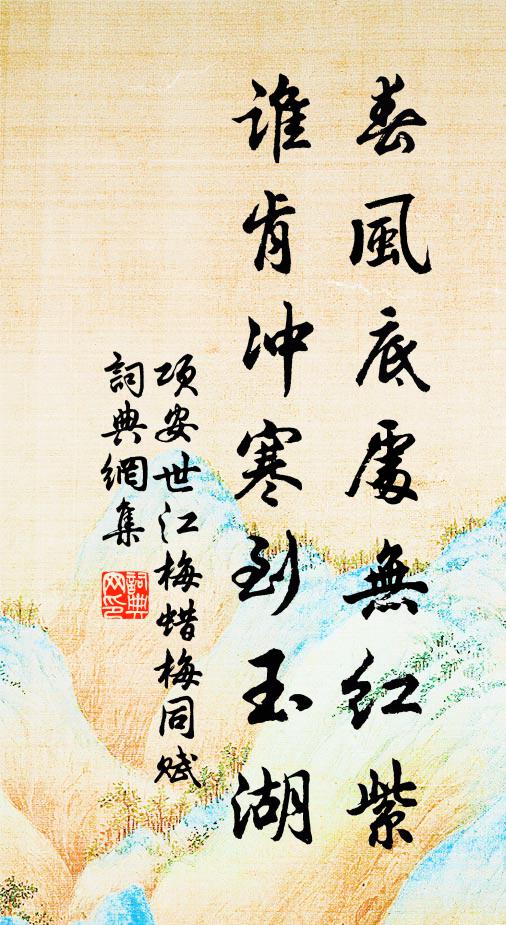 春風底處無紅紫
誰肯冲寒到玉湖
項安世江梅蜡梅同賦
詞典網集
詞典网印